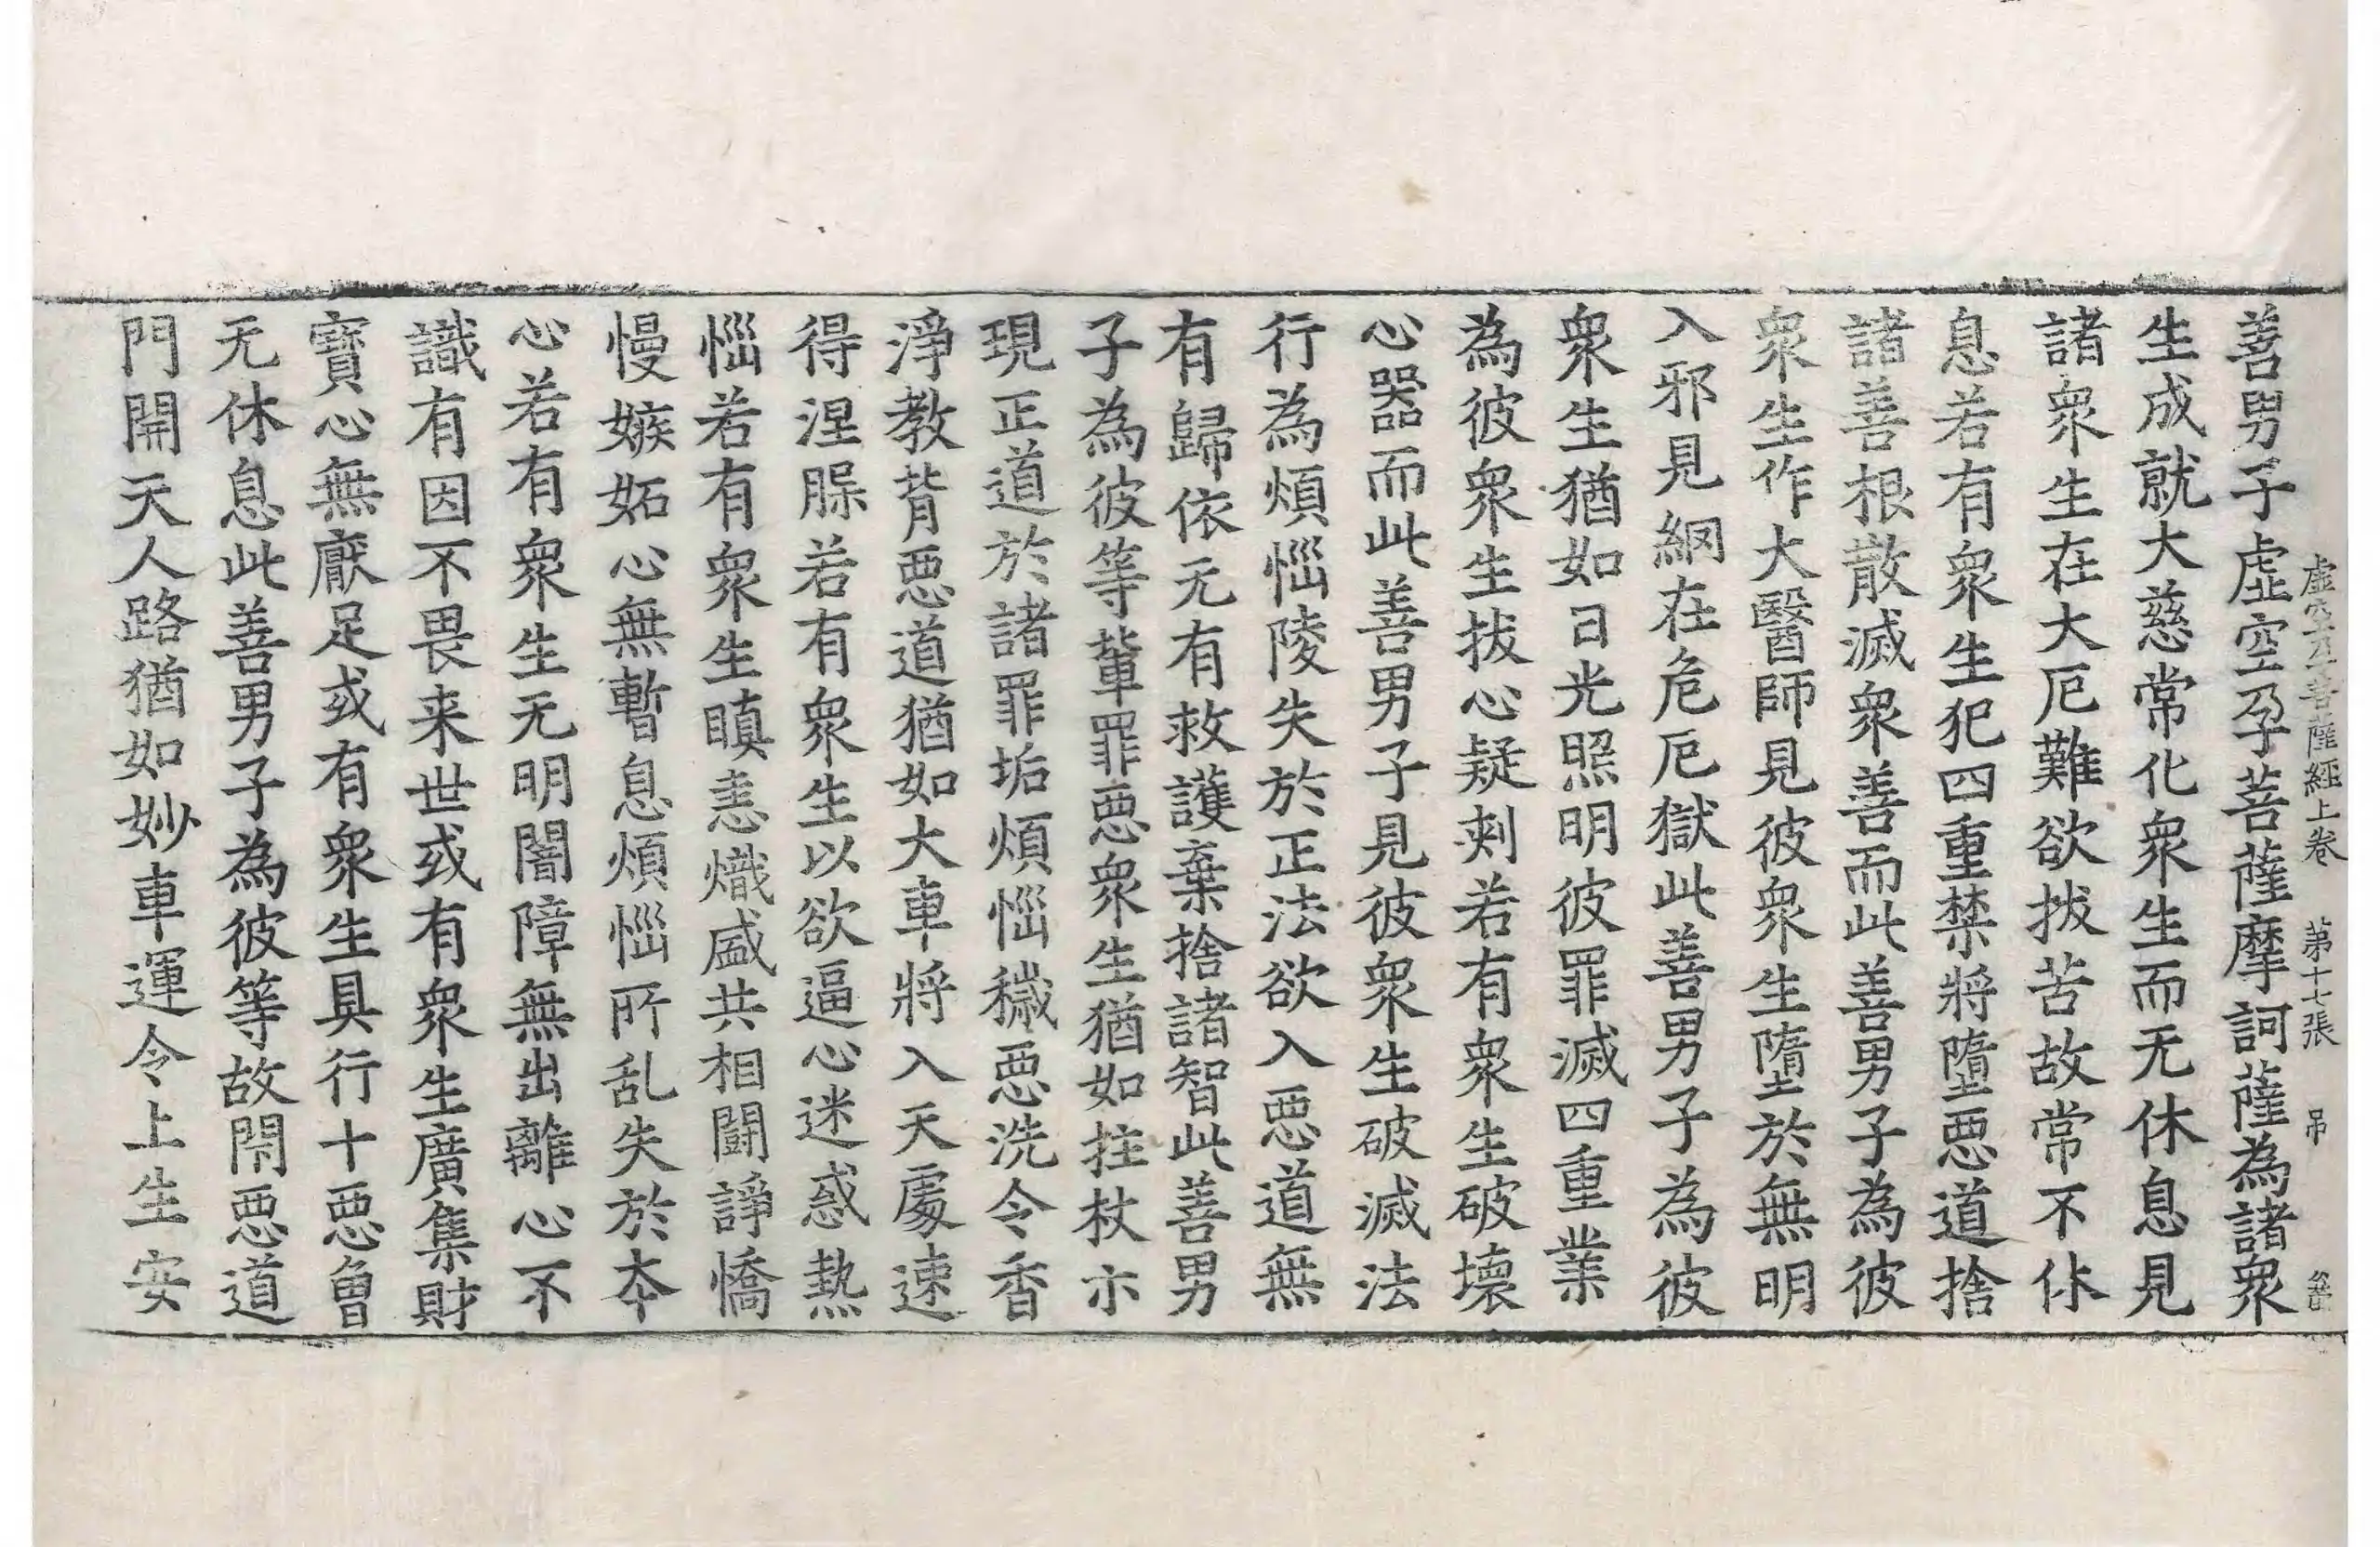 虛空孕菩薩經上卷 第十七張 吊
善男子虛空孕菩薩摩訶薩為諸衆
生成就大慈常化衆生而无休息見
諸衆生在大厄難欲拔苦故常不休
息若有衆生犯四重禁將墮惡道捨
諸善根散滅衆善而此善男子為彼
衆生作大醫師見彼衆生墮於無明
入邪見網在危厄獄此善男子為彼
衆生猶如日光照明彼罪滅四重業
為彼衆生拔心疑刺若有衆生破壞
心器而此善男子見彼衆生破滅法
行為煩惱陵失於正法欲入惡道無
有歸依无有救護棄捨諸智此善男
子為彼等輩罪惡衆生猶如拄杖示
現正道於諸罪垢煩惱穢惡洗令香
淨教背惡道猶如大車將入天處速
得涅槃若有衆生以欲逼心迷惑熱
惱若有衆生瞋恚熾盛共相鬪諍憍
慢嫉妬心無暫息煩惱所乱失於本
心若有衆生无明闇障無出離心不
識有因不畏来世或有衆生廣集財
寶心無厭足或有衆生具行十惡曾
无休息此善男子為彼等故閇惡道
門開天人路猶如妙車運令上生安